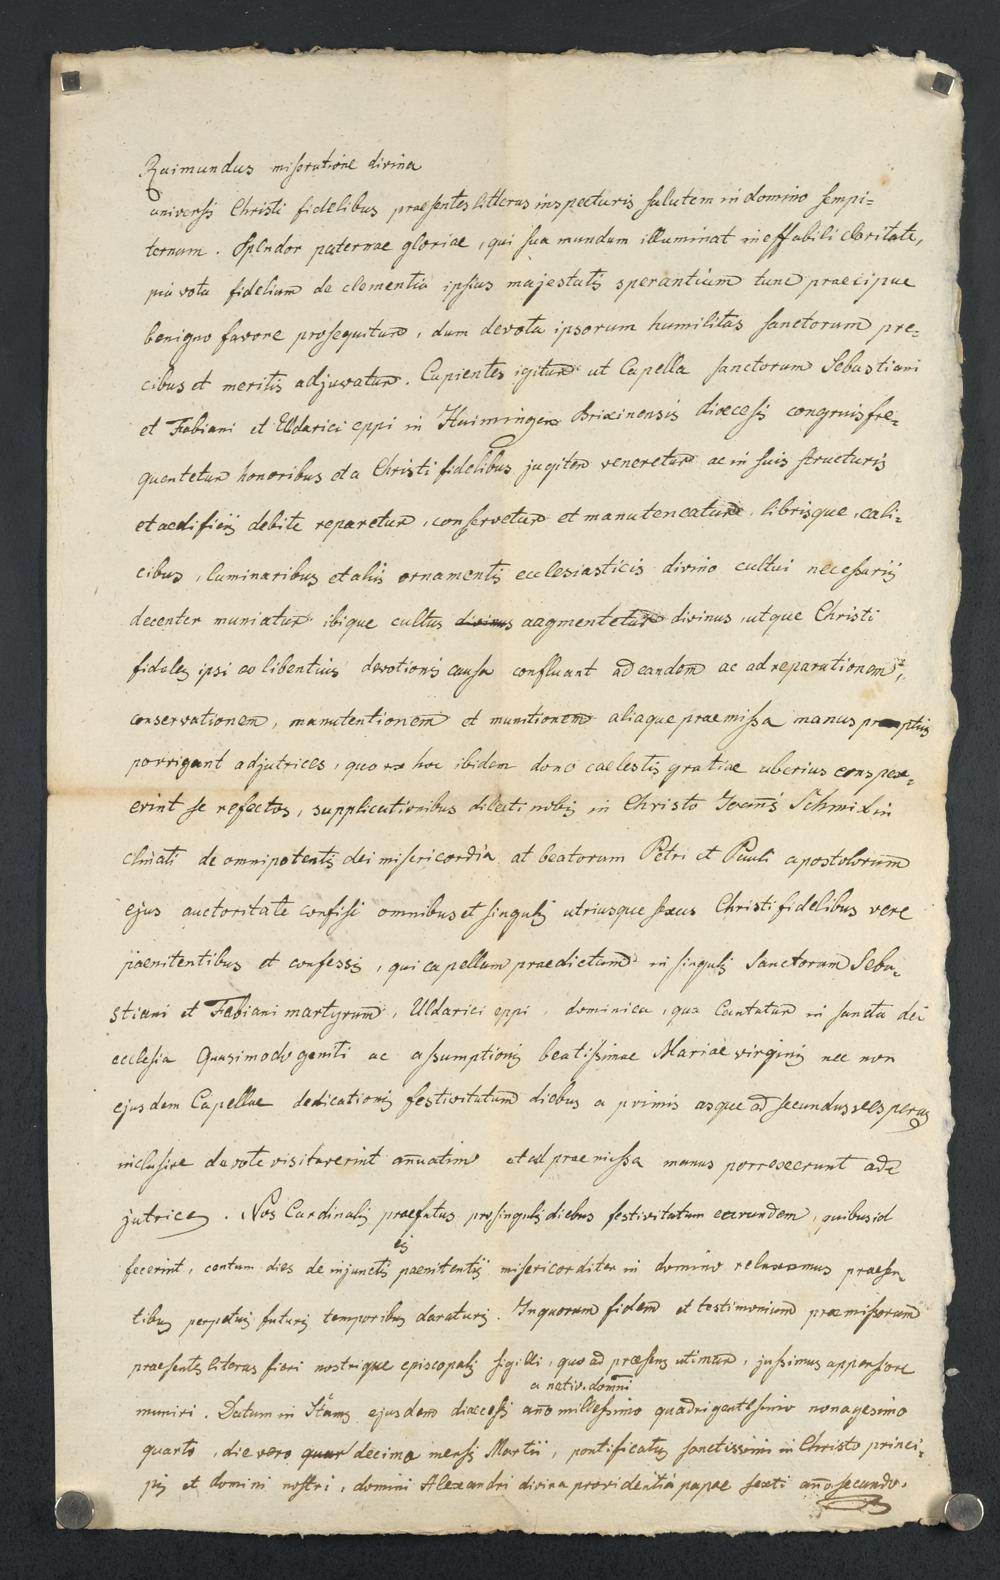 Raimundus miseratione divina
universis Christi fidelibus praesentes litteras inspecturis salutem in domino sempi=
ternam. Splendor paternae gloriae, qui sua mundum illuminat ineffabili claritate,
pia vota fidelium de clementia ipsius majestatis sperantium tunc praecipue
benigno favore prosequitur, dum devota ipsorum humilitas sanctorum pre=
cibus et meritis adjuvatur. Cupientes igitur ut Capella sanctorum Sebastiani
et Fabiani et Uldarici eppi in Haimingen Brixinensis dioecesis congruis fre=
quentetur honoribus et a Christi fidelibus jugiter veneretur ac in suis structuris
et aedificiis debite reparetur, conservetur et manuteneatur, librisque, cali=
cibus, luminaribus et aliis ornamentis ecclesiasticis divino cultui necessariis
decenter muniatur ibique cultus divinus augmentetur divinus, utque Christi
fideles ipsi eo libentius devotionis causa confluant ad eandem ac ad reparationem,
conservationem, manutentionem et munitionem aliaque praemissa manus promptius
porrigant adjutrices, quo ex hoc ibidem dono caelestis gratiae uberius conspex=
erint se refectos, supplicationibus dilecti nobis in Christo Joannis Schmid in
clinati de omnipotentis dei misericordia at beatorum Petri et Pauli apostolorum
ejus auctoritate confisi omnibus et singulis utriusque sexus Christi fidelibus vere
paenitentibus et confessis, qui capellam praedictam in singulis Sanctorum Seba=
stiani et Fabiani martyrum, Uldarici eppi, dominica, qua Cantatur in sancta dei
ecclesia Quasimodo geniti ac assumptionis beatissimae Mariae virginis nec non
ejusdem Capellae dedicationis festivitatum diebus a primis usque ad secundas vesperas
inclusive devote visitaverint annuatim et ad praemissa manus porrexerunt ad=
jutrices. Nos Cardinalis praefatus pro singulis diebus festivitatum earundem, quibus id
fecerint, centum dies de injunctis eis paenitentiis misericorditer in domino relaxamus praesen
tibus perpetuis futuris temporibus daraturis. In quorum fidem et testimonium praemissorum
praesentes literas fieri nostrique episcopalis sigilli, quo ad praesens utimur, jussimus appensione
muniri. Datum in Stams ejusdem dioecesis anno a nativ. domni millesimo quadrigentesimo nonagesimo
quarto, die vero quar decima mensis Martii, pontificatus sanctissimi in Christo princi=
pis et domini nostri, domini Alexandri divina providentia papae sexti anno secundo.